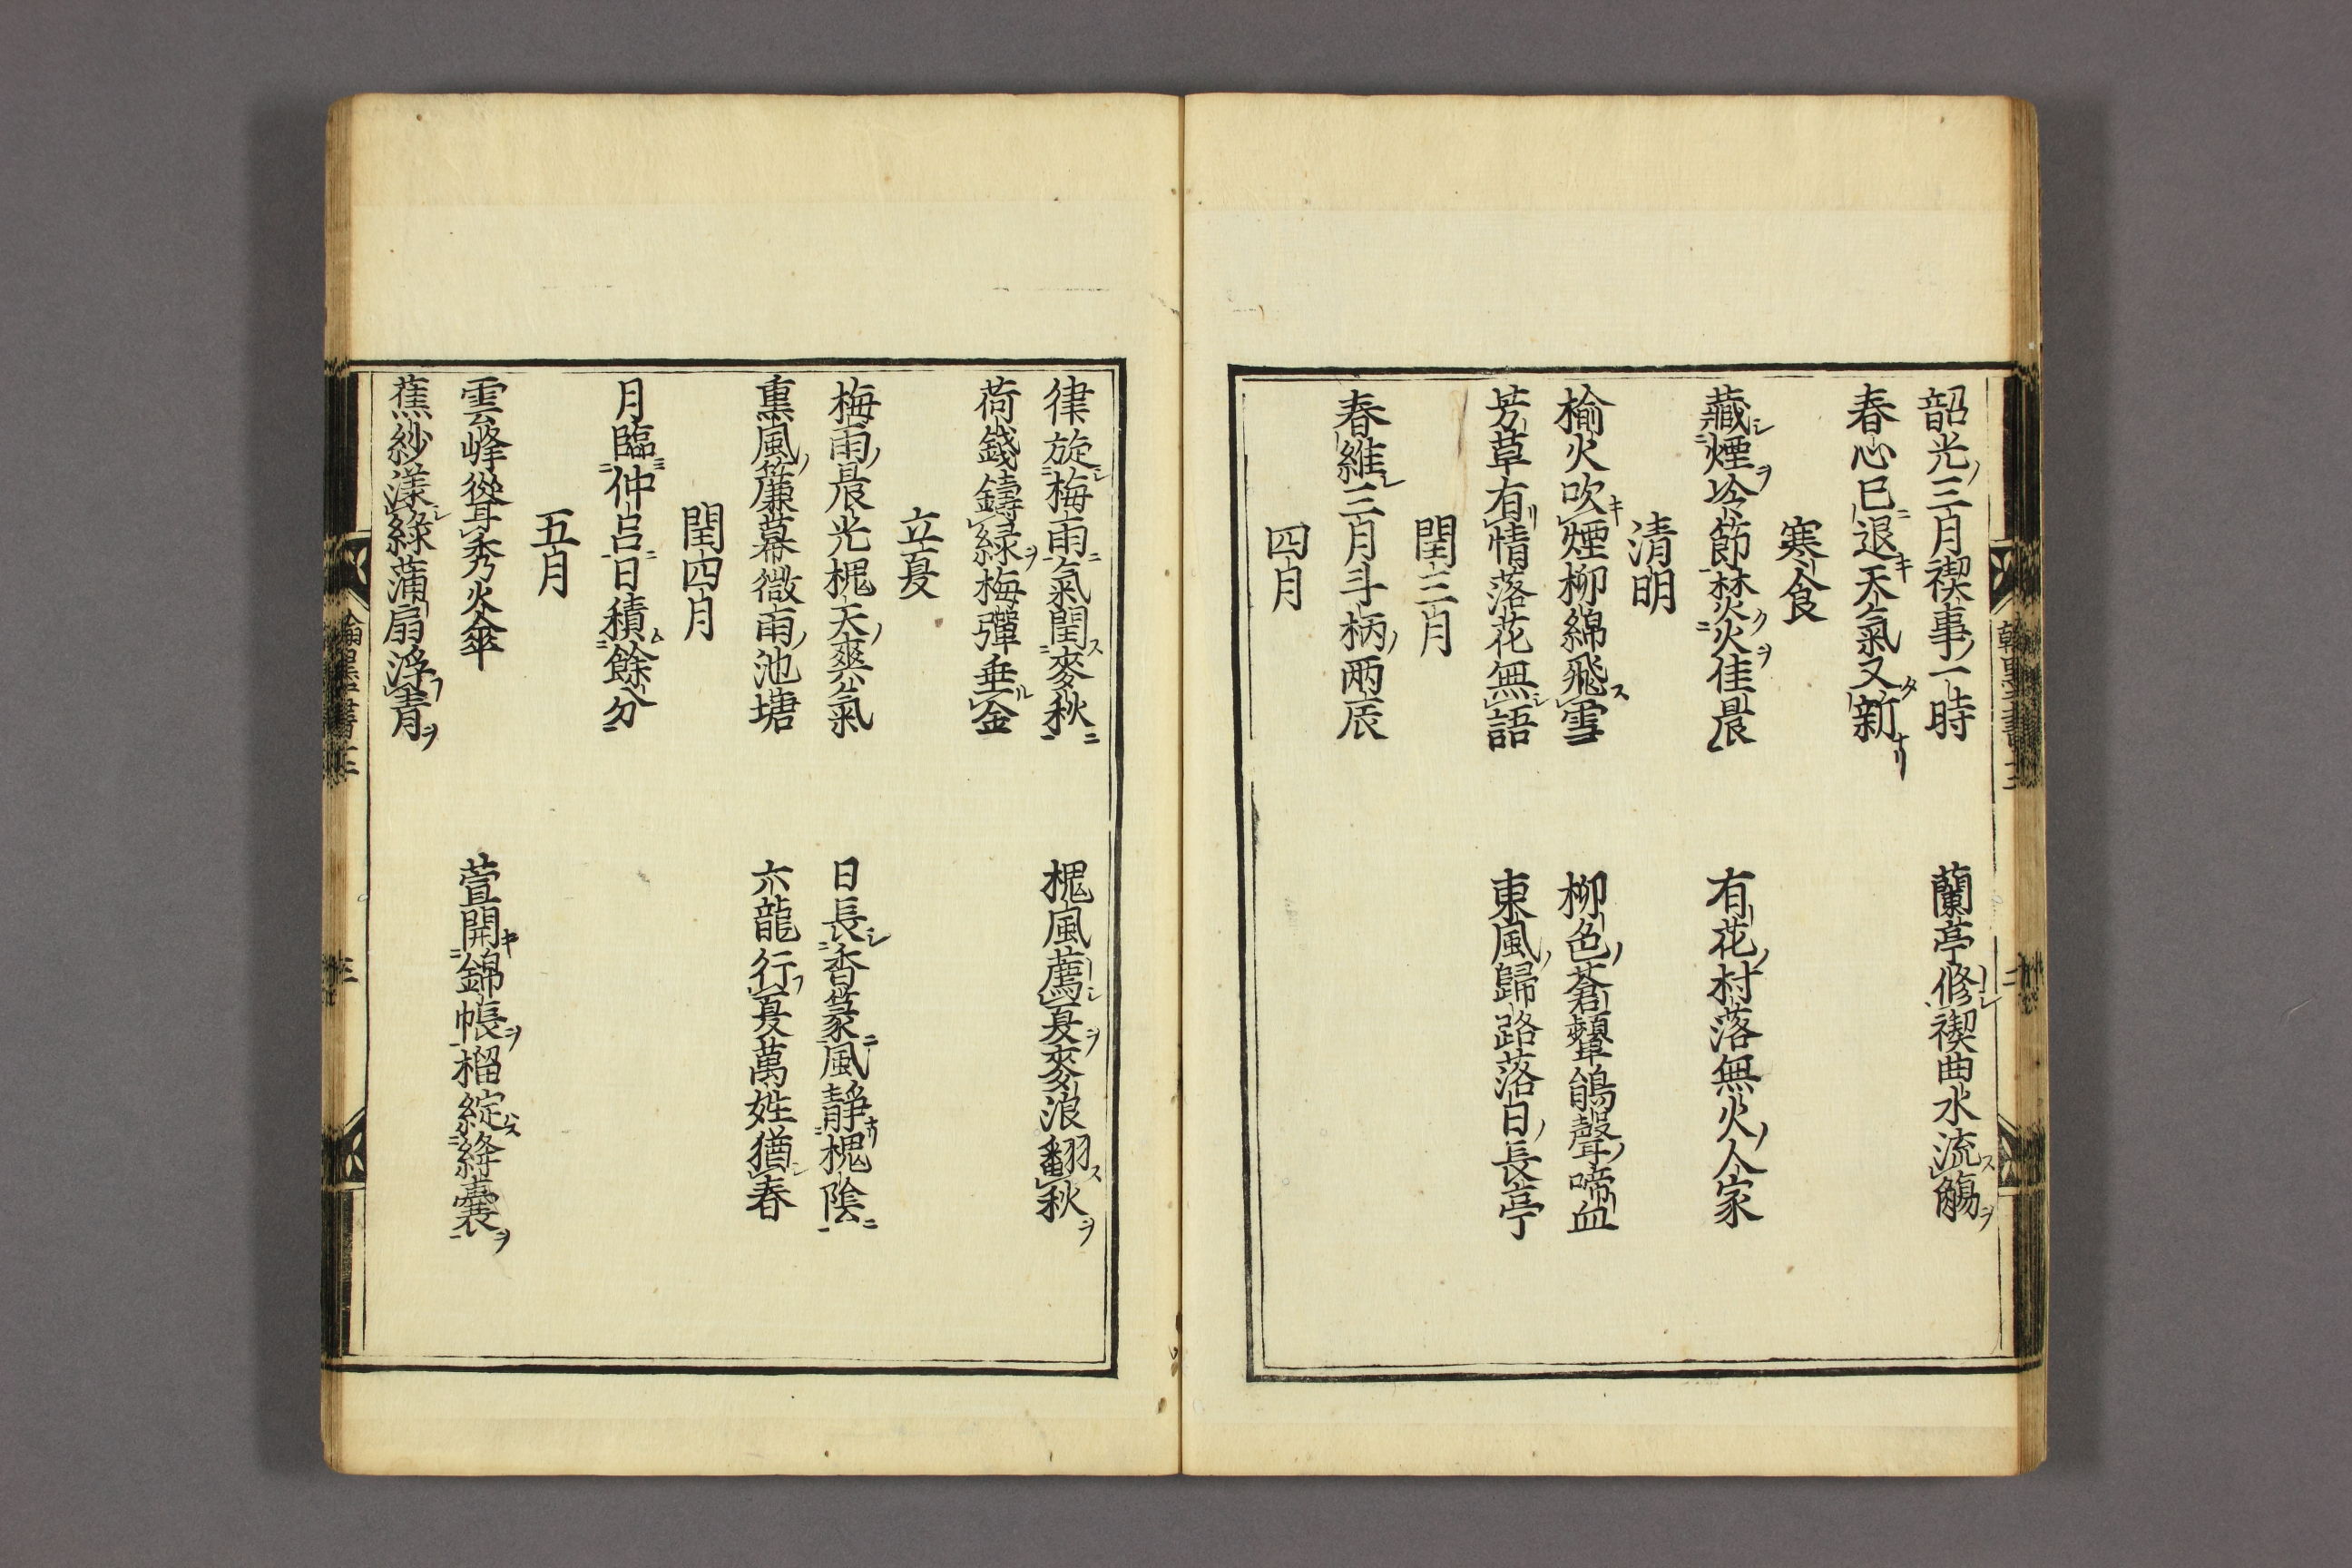 韶光三月禊事一時　蘭亭修禊曲水流觴
春心已退天氣又新
寒食
藏煙冷節禁火佳晨　有花村落無火人家
清明
榆火吹煙柳綿飛雪　柳色蒼顰鵑聲啼血
芳草有情落花無語　東風歸路落日長亭
閏三月
春維三月斗柄兩辰
四月
律旋梅雨氣閏麥秋　槐風薦夏麥浪翻秋
荷錢鑄緑梅彈垂金
立夏
梅雨晨光槐天爽氣　日長香篆風靜槐陰
熏風簾幕微雨池塘　六龍行夏萬姓猶春
閏四月
月臨仲呂日積餘分
五月
雲峰從聳秀火傘　萱開錦帳榴綻絳囊
蕉紗漾綠蒲扇浮青